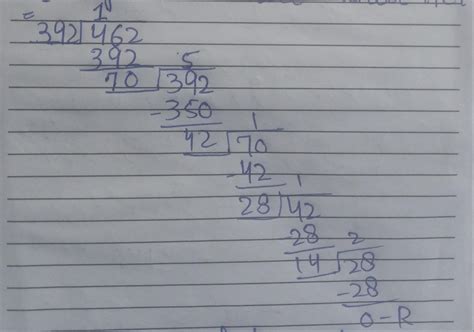 = 1
392 462
392 5
70 392
-350 1
42 70
-42 1
28 42
28 2
14 28
-28
0-R